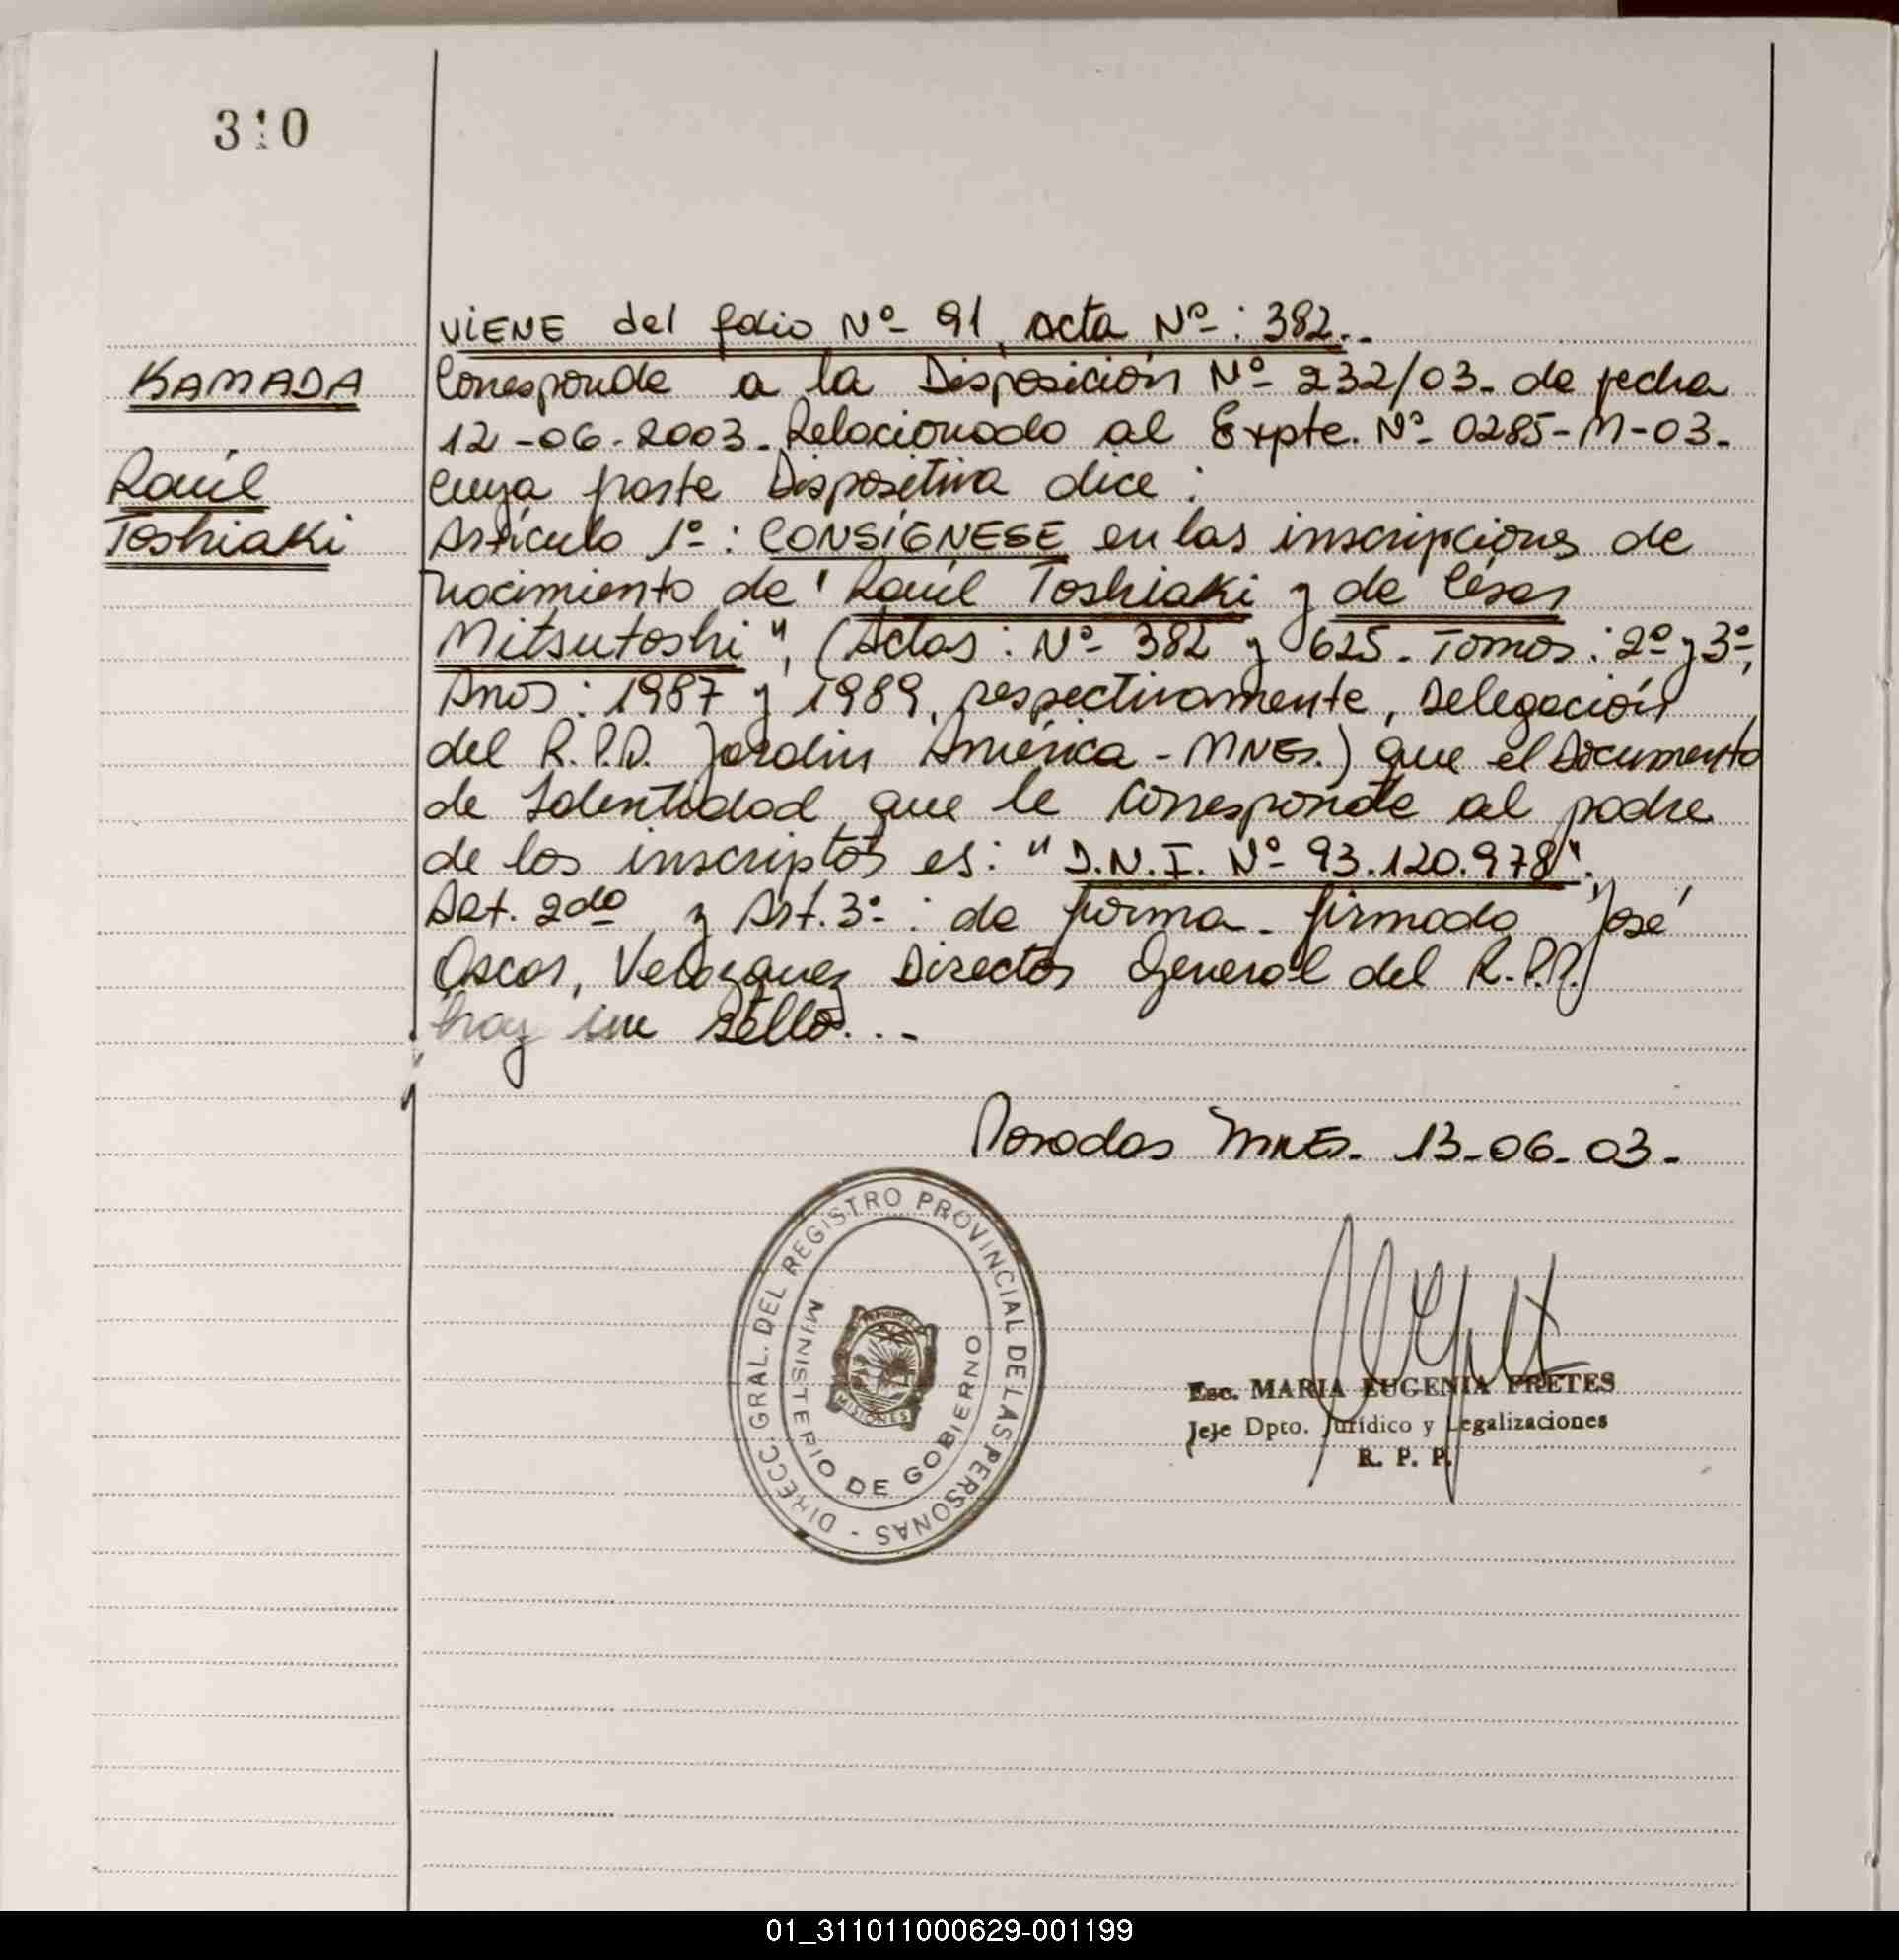 310
VIENE del folio Nº 91, acta Nº: 382..
KAMADA
Corresponde a la Disposición Nº 232/03- de fecha
12-06-2003- Relacionado al Expte. Nº 0285-M-03-
Raúl
cuya parte Dispositiva dice:
Toshiaki
Artículo 1º: CONSÍGNESE en las inscripciones de
nacimiento de "Raúl Toshiaki y de César
Mitsutoshi", (Actas: Nº 382 y 625- Tomos: 2º y 3º,
Años: 1987 y 1989, respectivamente, Delegación
del R.P.P. Jardín América - MNES.) que el Documento
de Identidad que le corresponde al padre
de los inscriptos es: "D.N.I. Nº 93.120.978".
Art. 2do y Art. 3º: de forma- firmado José
Oscar, Velazquez Director General del R.P.P.
hay un sello...-
Posadas MNES- 13-06-03-
DIRECC. GRAL. DEL REGISTRO PROVINCIAL DE LAS PERSONAS -
MINISTERIO DE GOBIERNO
MISIONES
Esc. MARIA EUGENIA FRETES
Jefe Dpto. Jurídico y Legalizaciones
R. P. P.
01_311011000629-001199